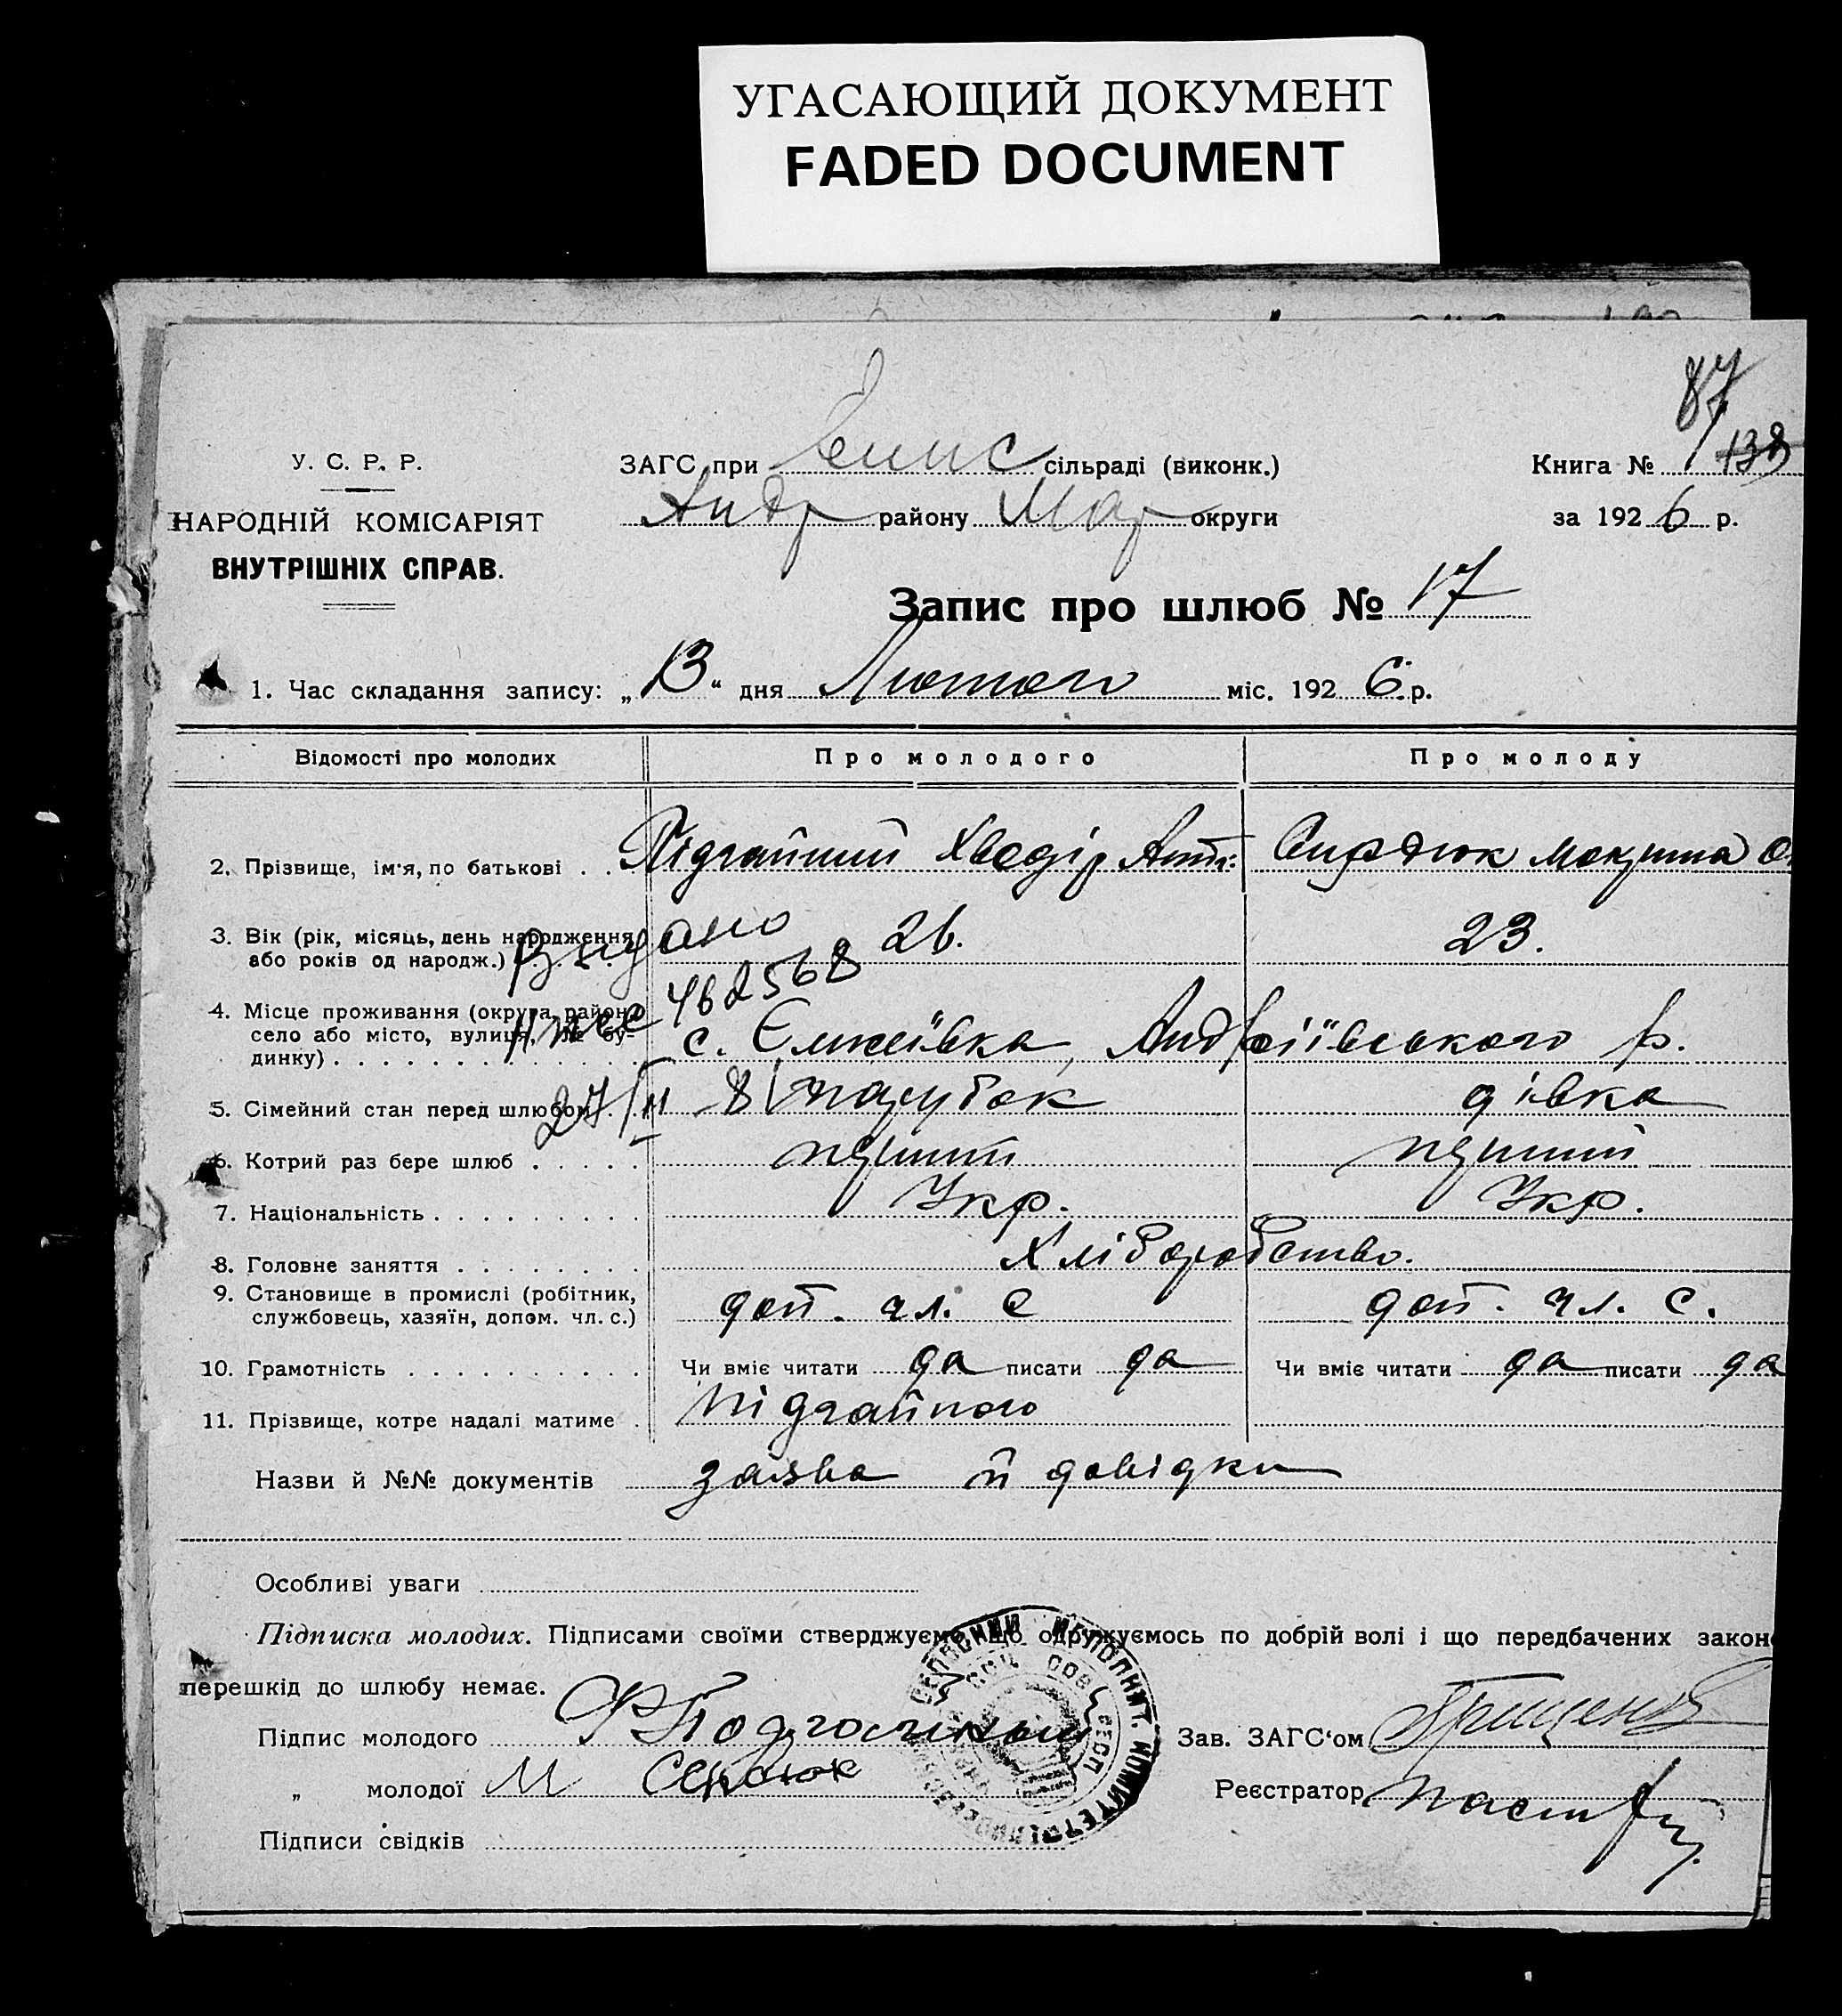 УГАСАЮЩИЙ ДОКУМЕНТ
FADED DOCUMENT
87
138
У. С. Р. Р.
НАРОДНІЙ КОМІСАРІЯТ
ВНУТРІШНІХ СПРАВ.
ЗАГС при сільраді (виконк.)
Андр району Мар округи
Книга №
за 1926 р.
Запис про шлюб № 17
1. Час складання запису: „13“ дня Лютого міс. 1926 р.
Відомості про молодих Про молодого Про молоду
2. Прізвище, ім'я, по батькові . . Підгайний Хведір Ант. Сердюк Мокрина О.
3. Вік (рік, місяць, день народження або років од народж.) 26. 23.
Видано
462568
4. Місце проживання (округа, район, село або місто, вулиця, № бу-
динку) с. Андріївського р.
27/II
5. Сімейний стан перед шлюбом парубок дівка
6. Котрий раз бере шлюб . . . . . перший перший
7. Національність . . . . . . . . . Укр. Укр.
8. Головне заняття . . . . . . . . Хліборобство.
9. Становище в промислі (робітник,
службовець, хазяїн, допом. чл. с.) доп. чл. с доп. чл. с.
10. Грамотність . . . . . . . . . . Чи вміє читати да писати да Чи вміє читати да писати да
11. Прізвище, котре надалі матиме . Підгайного
Назви й №№ документів заява й довідки
Особливі уваги
Підписка молодих. Підписами своїми стверджуємо, що одружуємось по добрій волі і що передбачених закон
перешкід до шлюбу немає.
Підпис молодого Ф Подгайный Зав. ЗАГС'ом
„ молодої М Сердюк Реєстратор
Підписи свідків
ИСПОЛНИТ. КОМИТЕТ